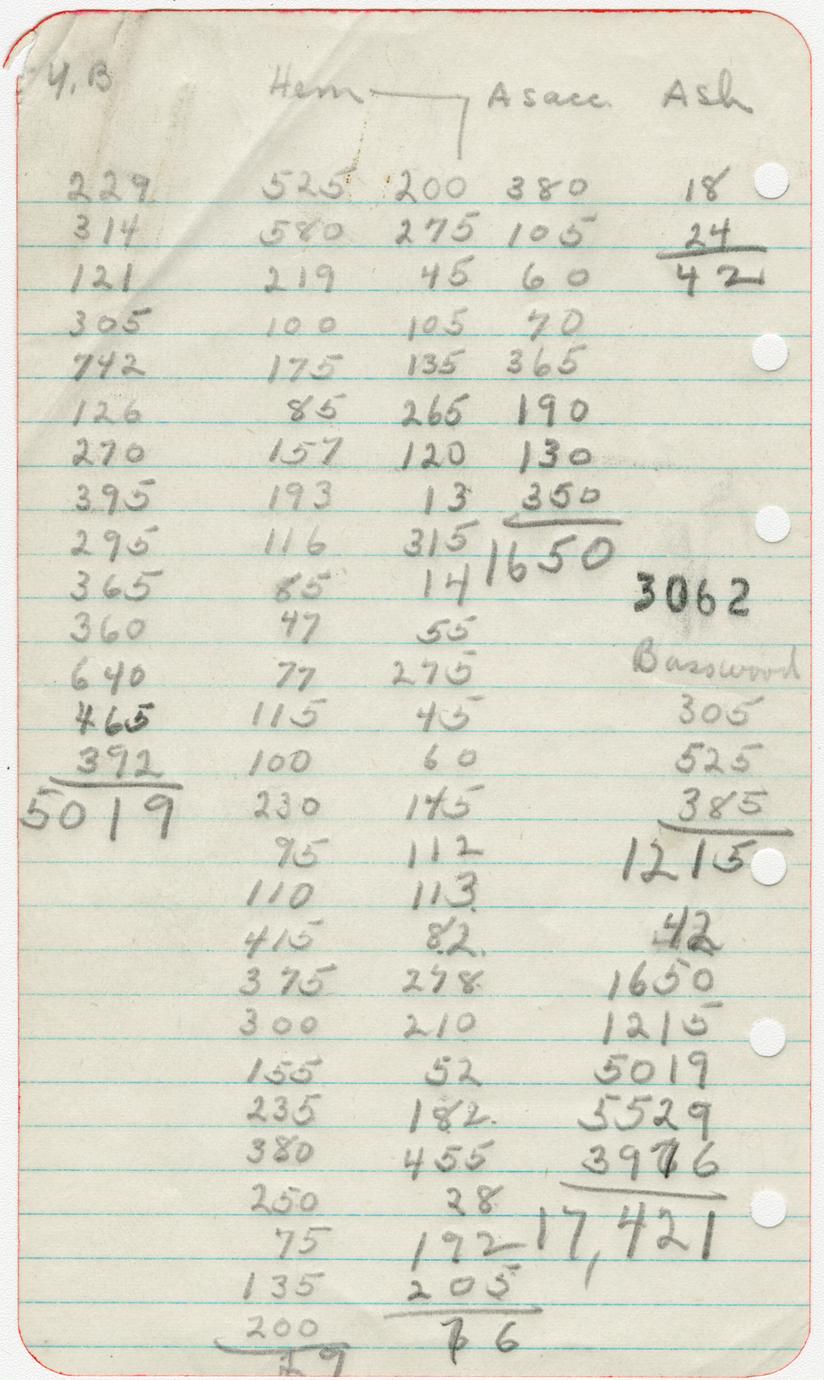 Y.B Hem Asacc. Ash
229 525 200 380 18
314 580 275 105 24
121 219 45 60 42
305 100 105 70
742 175 135 365
126 85 265 190
270 157 120 130
395 193 13 350
295 116 315 1650
365 85 14 3062
360 47 55
640 77 275 Basswood
465 115 45 305
392 100 60 525
5019 230 145 385
95 112 1215
110 113
415 82 42
375 278 1650
300 210 1215
155 52 5019
235 182 5529
380 455 3976
250 28
75 192 17,421
135 205
200 76
29